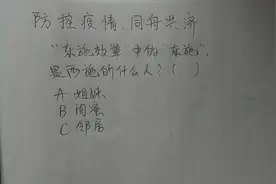 防控疫情、同舟共济
"东施效颦"中的"东施",
是西施的什么人？( )
A 姐妹
B 闺蜜
C 邻居